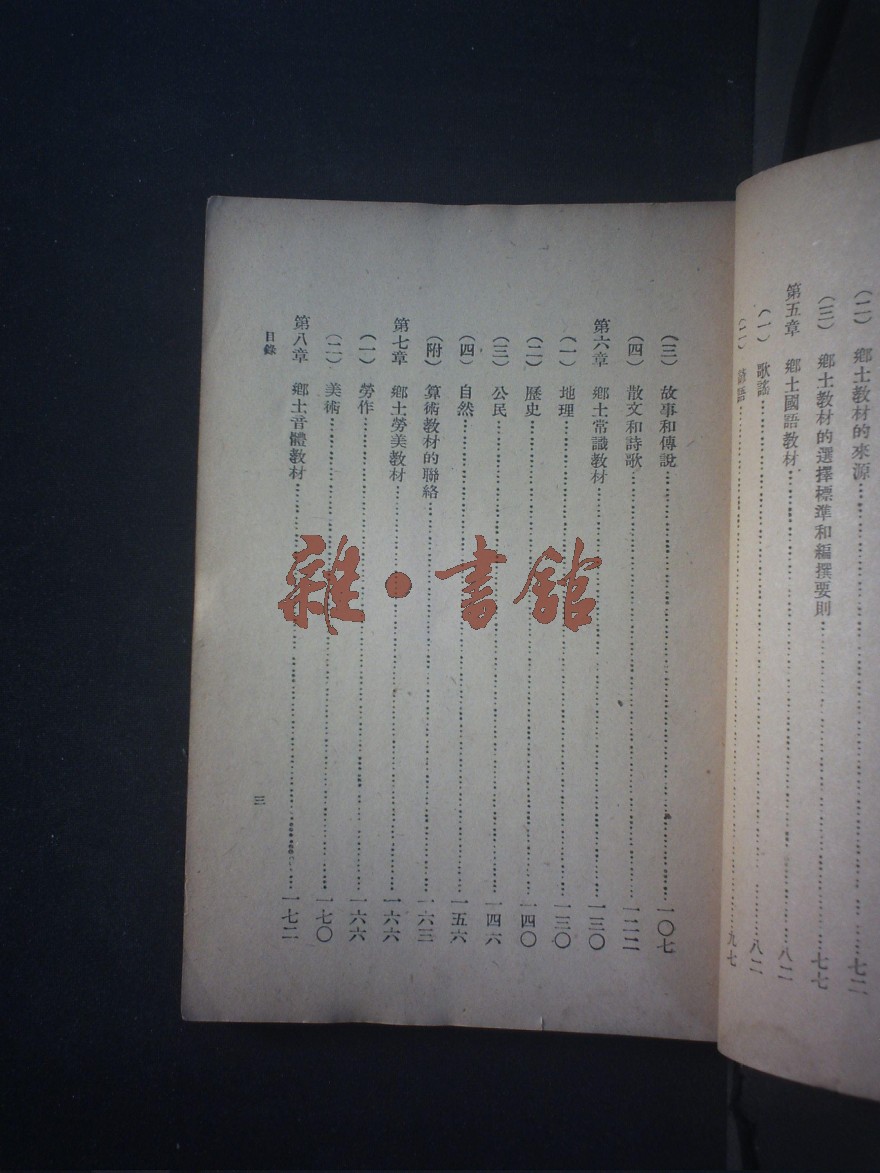 (二) 鄉土教材的來源……七二
(三) 鄉土教材的選擇標準和編撰要則……七七
第五章 鄉土國語教材……八二
(一) 歌謠……八二
(二) 謎語……九七
(三) 故事和傳說……一〇七
(四) 散文和詩歌……一二二
第六章 鄉土常識教材……一三〇
(一) 地理……一三〇
(二) 歷史……一四〇
(三) 公民……一四六
(四) 自然……一五六
(附) 算術教材的聯絡……一六三
第七章 鄉土勞美教材……一六六
(一) 勞作……一六六
(二) 美術……一七〇
第八章 鄉土音體教材……一七二
目錄
三
雜·書館